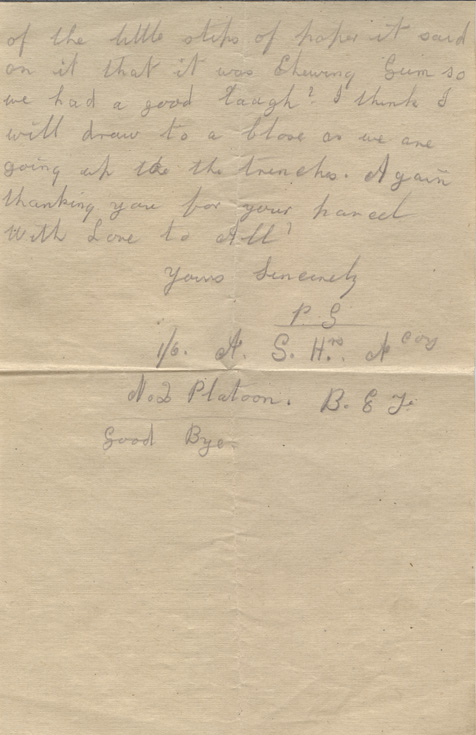 of the little stips of paper it said
on it that it was Chewing Gum so
we had a good laugh? I think I
will draw to a close as we are
going up to the trenches. Again
thanking you for your parcel
With Love to All?
Yours Sincerely
P S
1/6. A. S. Hrs. A Coy
No2 Platoon. B. E F.
Good Bye.